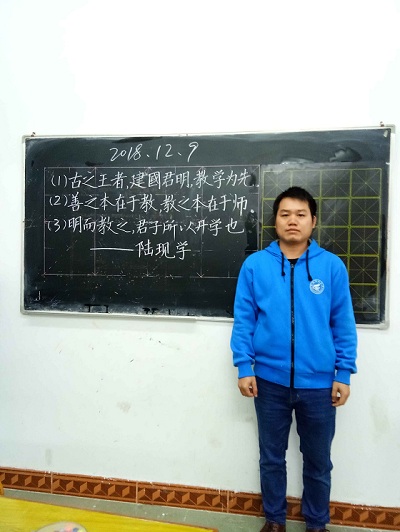 2018.12.9
(1)古之王者,建國君明,教学为先
(2)善之本在于教,教之本在于师.
(3)明而教之,君子所以升学也
——陆现学